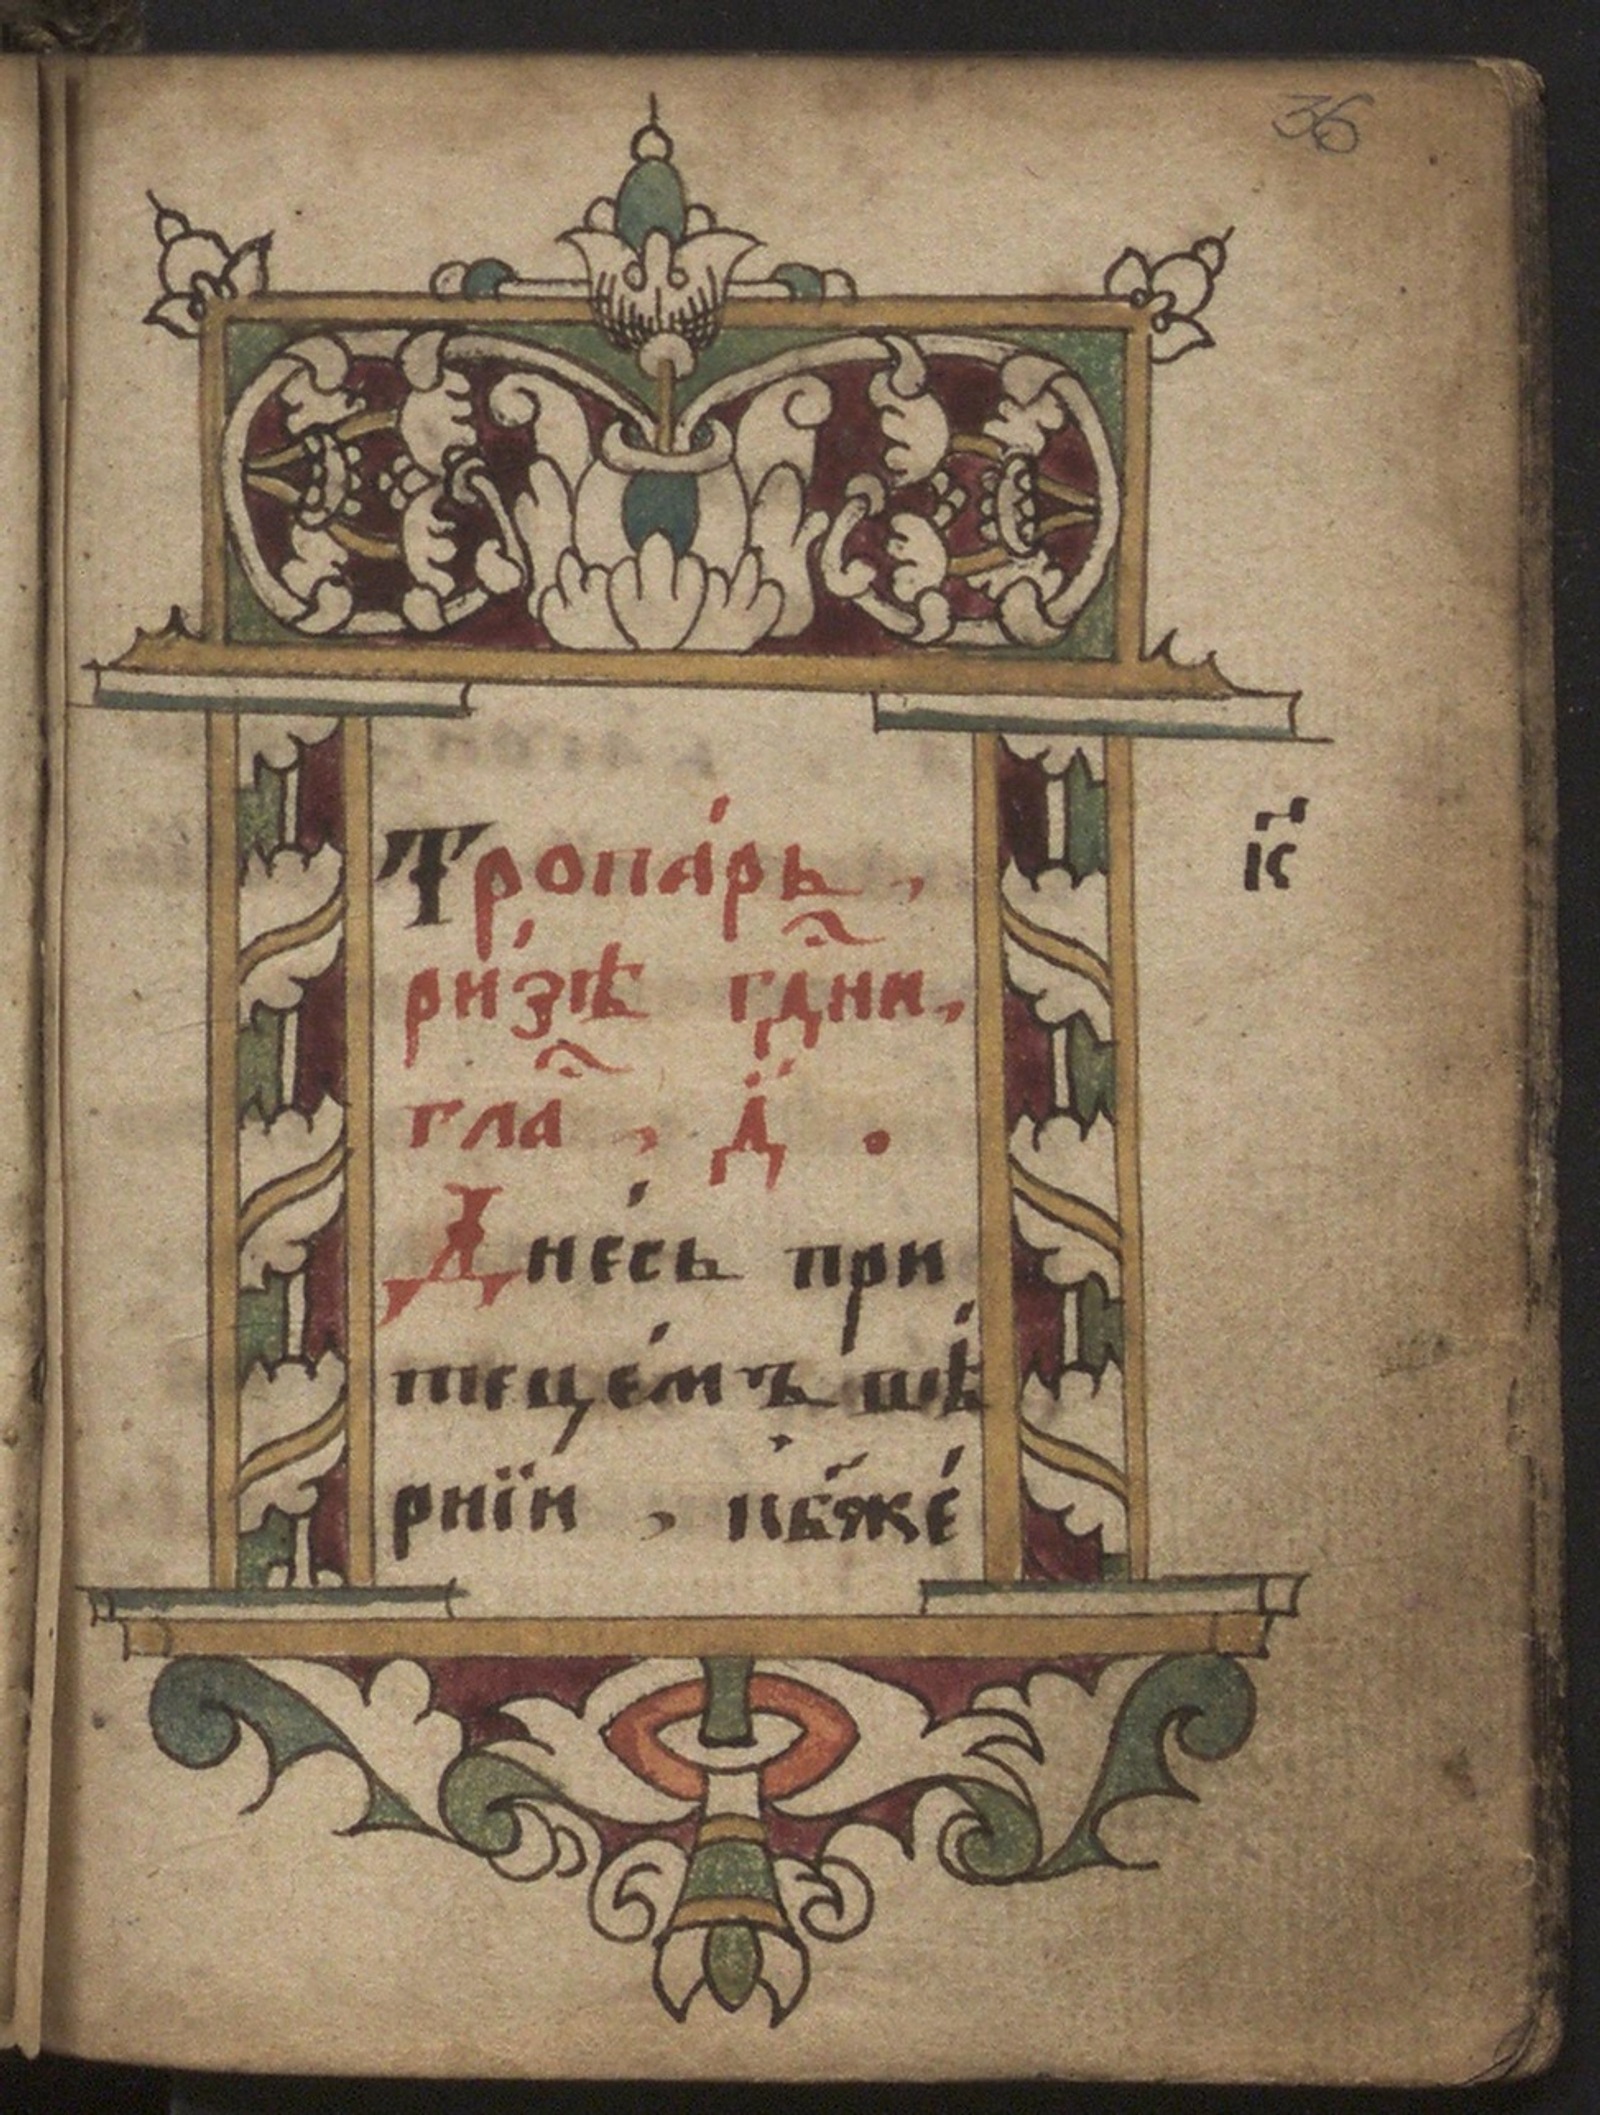 36
Тропа́рь,
ри́зѣ гд҇ни,
гла҇, д҃.
Дне́сь при
тецемъ вѣ́
рнїи, кбж҃е́
к҃